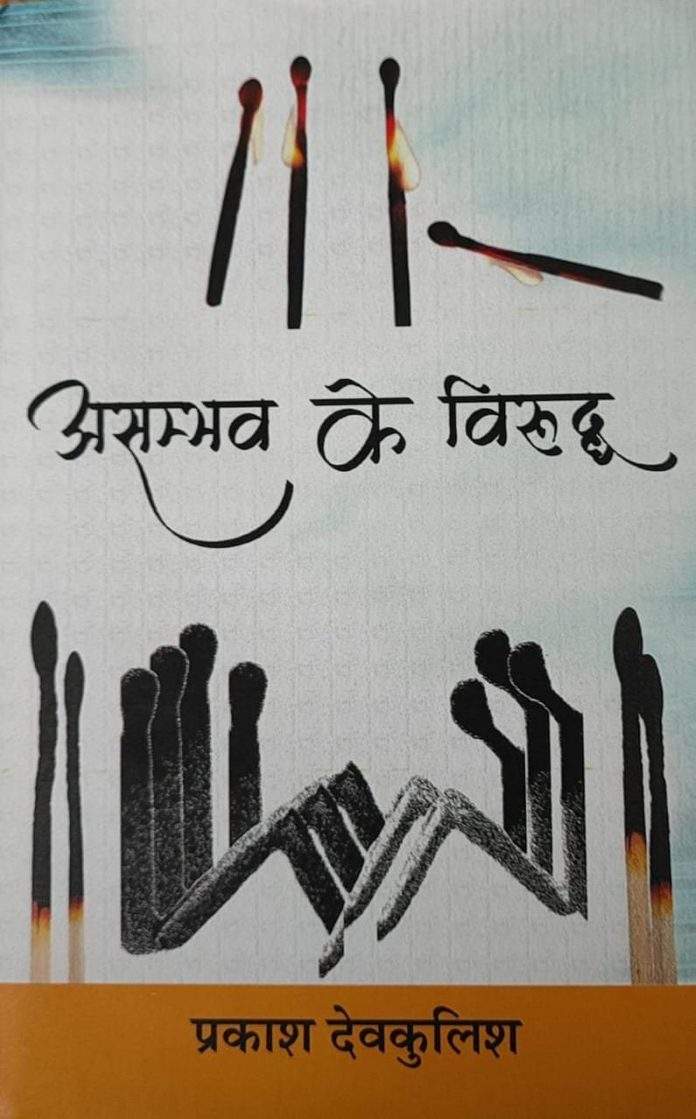 असम्भव के विरुद्ध
प्रकाश देवकुलिश